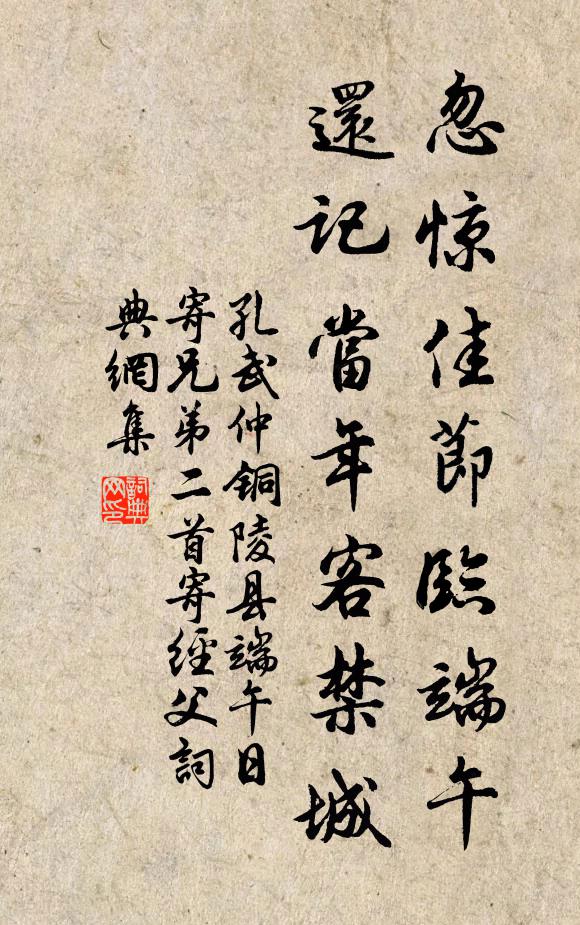 忽惊佳節臨端午
還記當年客禁城
孔武仲铜陵县端午日
寄兄弟二首寄經父詞
典網集
詞典
网印